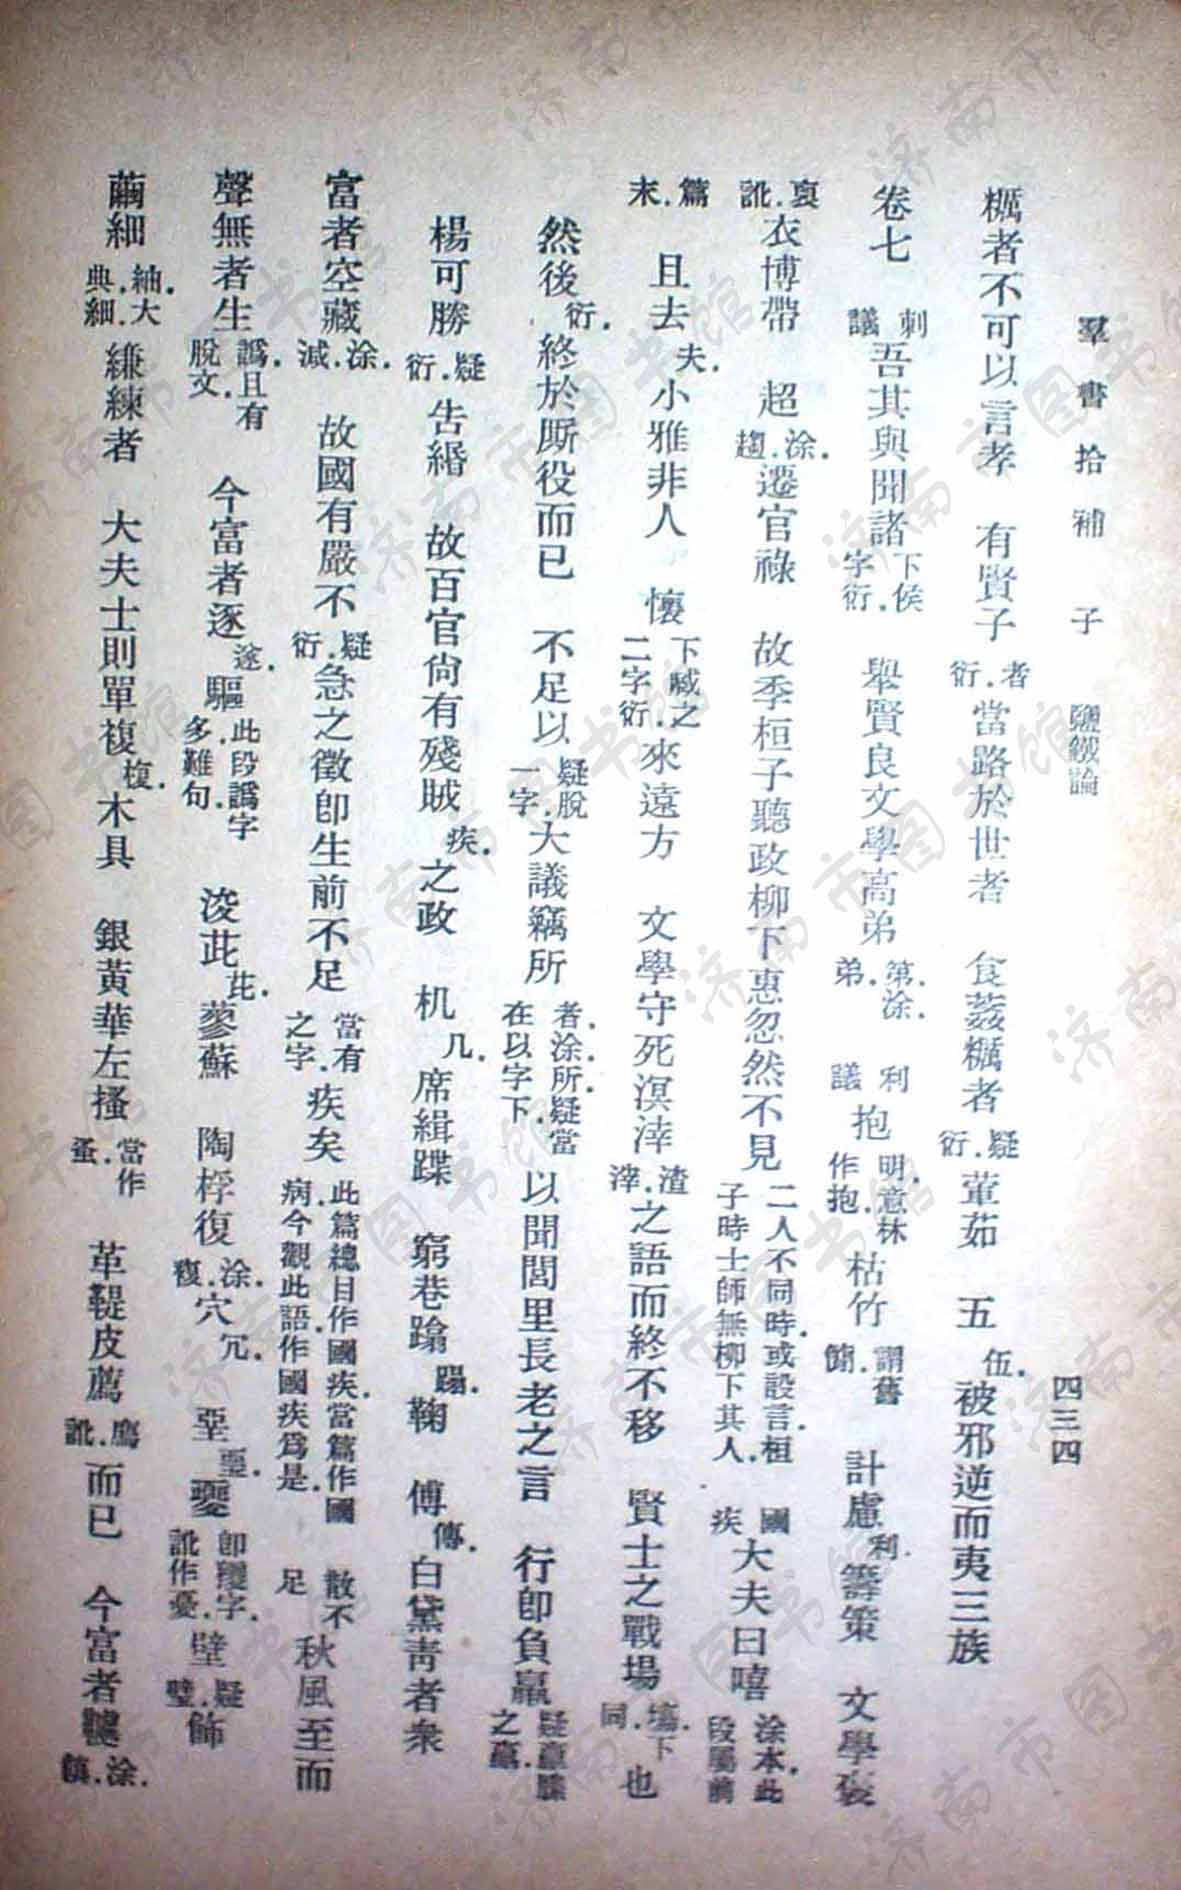 羣書拾補 子 鹽鐵論 四三四
糲者不可以言孝 有賢子 者衍. 當路於世者 食荔糲者 疑衍. 葷茹 五 伍. 被邪逆而夷三族
卷七 刺議 吾其與聞諸 下侯字衍. 舉賢良文學高弟 第.涂.弟. 利議 抱 明.意林作抱. 枯竹 謂舊簡. 計慮 利. 籌策 文學裦
裒訛. 衣博帶 超 涂.趨. 遷官祿 故季桓子聽政柳下惠忽然不見 二人不同時.或設言.桓子時士師無柳下其人. 國疾 大夫曰嘻 涂本.此段屬前
篇末. 且去 夫. 小雅非人 懷 下臧之二字衍. 來遠方 文學守死溟涬 渣滓. 之語而終不移 賢士之戰場 塲.下同. 也
然後 衍. 終於厮役而已 不足以 疑脫一字. 大議竊所 者.涂.所.疑當在以字下. 以聞閭里長老之言 行卽負羸 疑羸縢之羸.
楊可勝 疑衍. 告緡 故百官尙有殘賊 疾. 之政 机 几. 席緝蹀 窮巷踰 蹋. 鞠 傅 傳. 白黛靑者衆
富者空藏 涂.減. 故國有嚴不 疑衍. 急之徵卽生前不足 當有之字. 疾矣 此篇總目作國疾.當篇作國病.今觀此語.作國疾爲是. 散不足 秋風至而
聲無者生 譌.且有脫文. 今富者逐 遂. 驅 此段譌字多.難句. 浚茈 茈. 蓼蘇 陶桴復 涂.複. 穴 冗. 堊 堊. 夒 卽獿字.訛作憂. 壁 疑璧. 飾
繭細 紬.大典.細. 縑練者 大夫士則單複 椱. 木具 銀黃華左搔 當作蚤. 革鞮皮薦 鷹訛. 而已 今富者𩮰 涂.鬒.